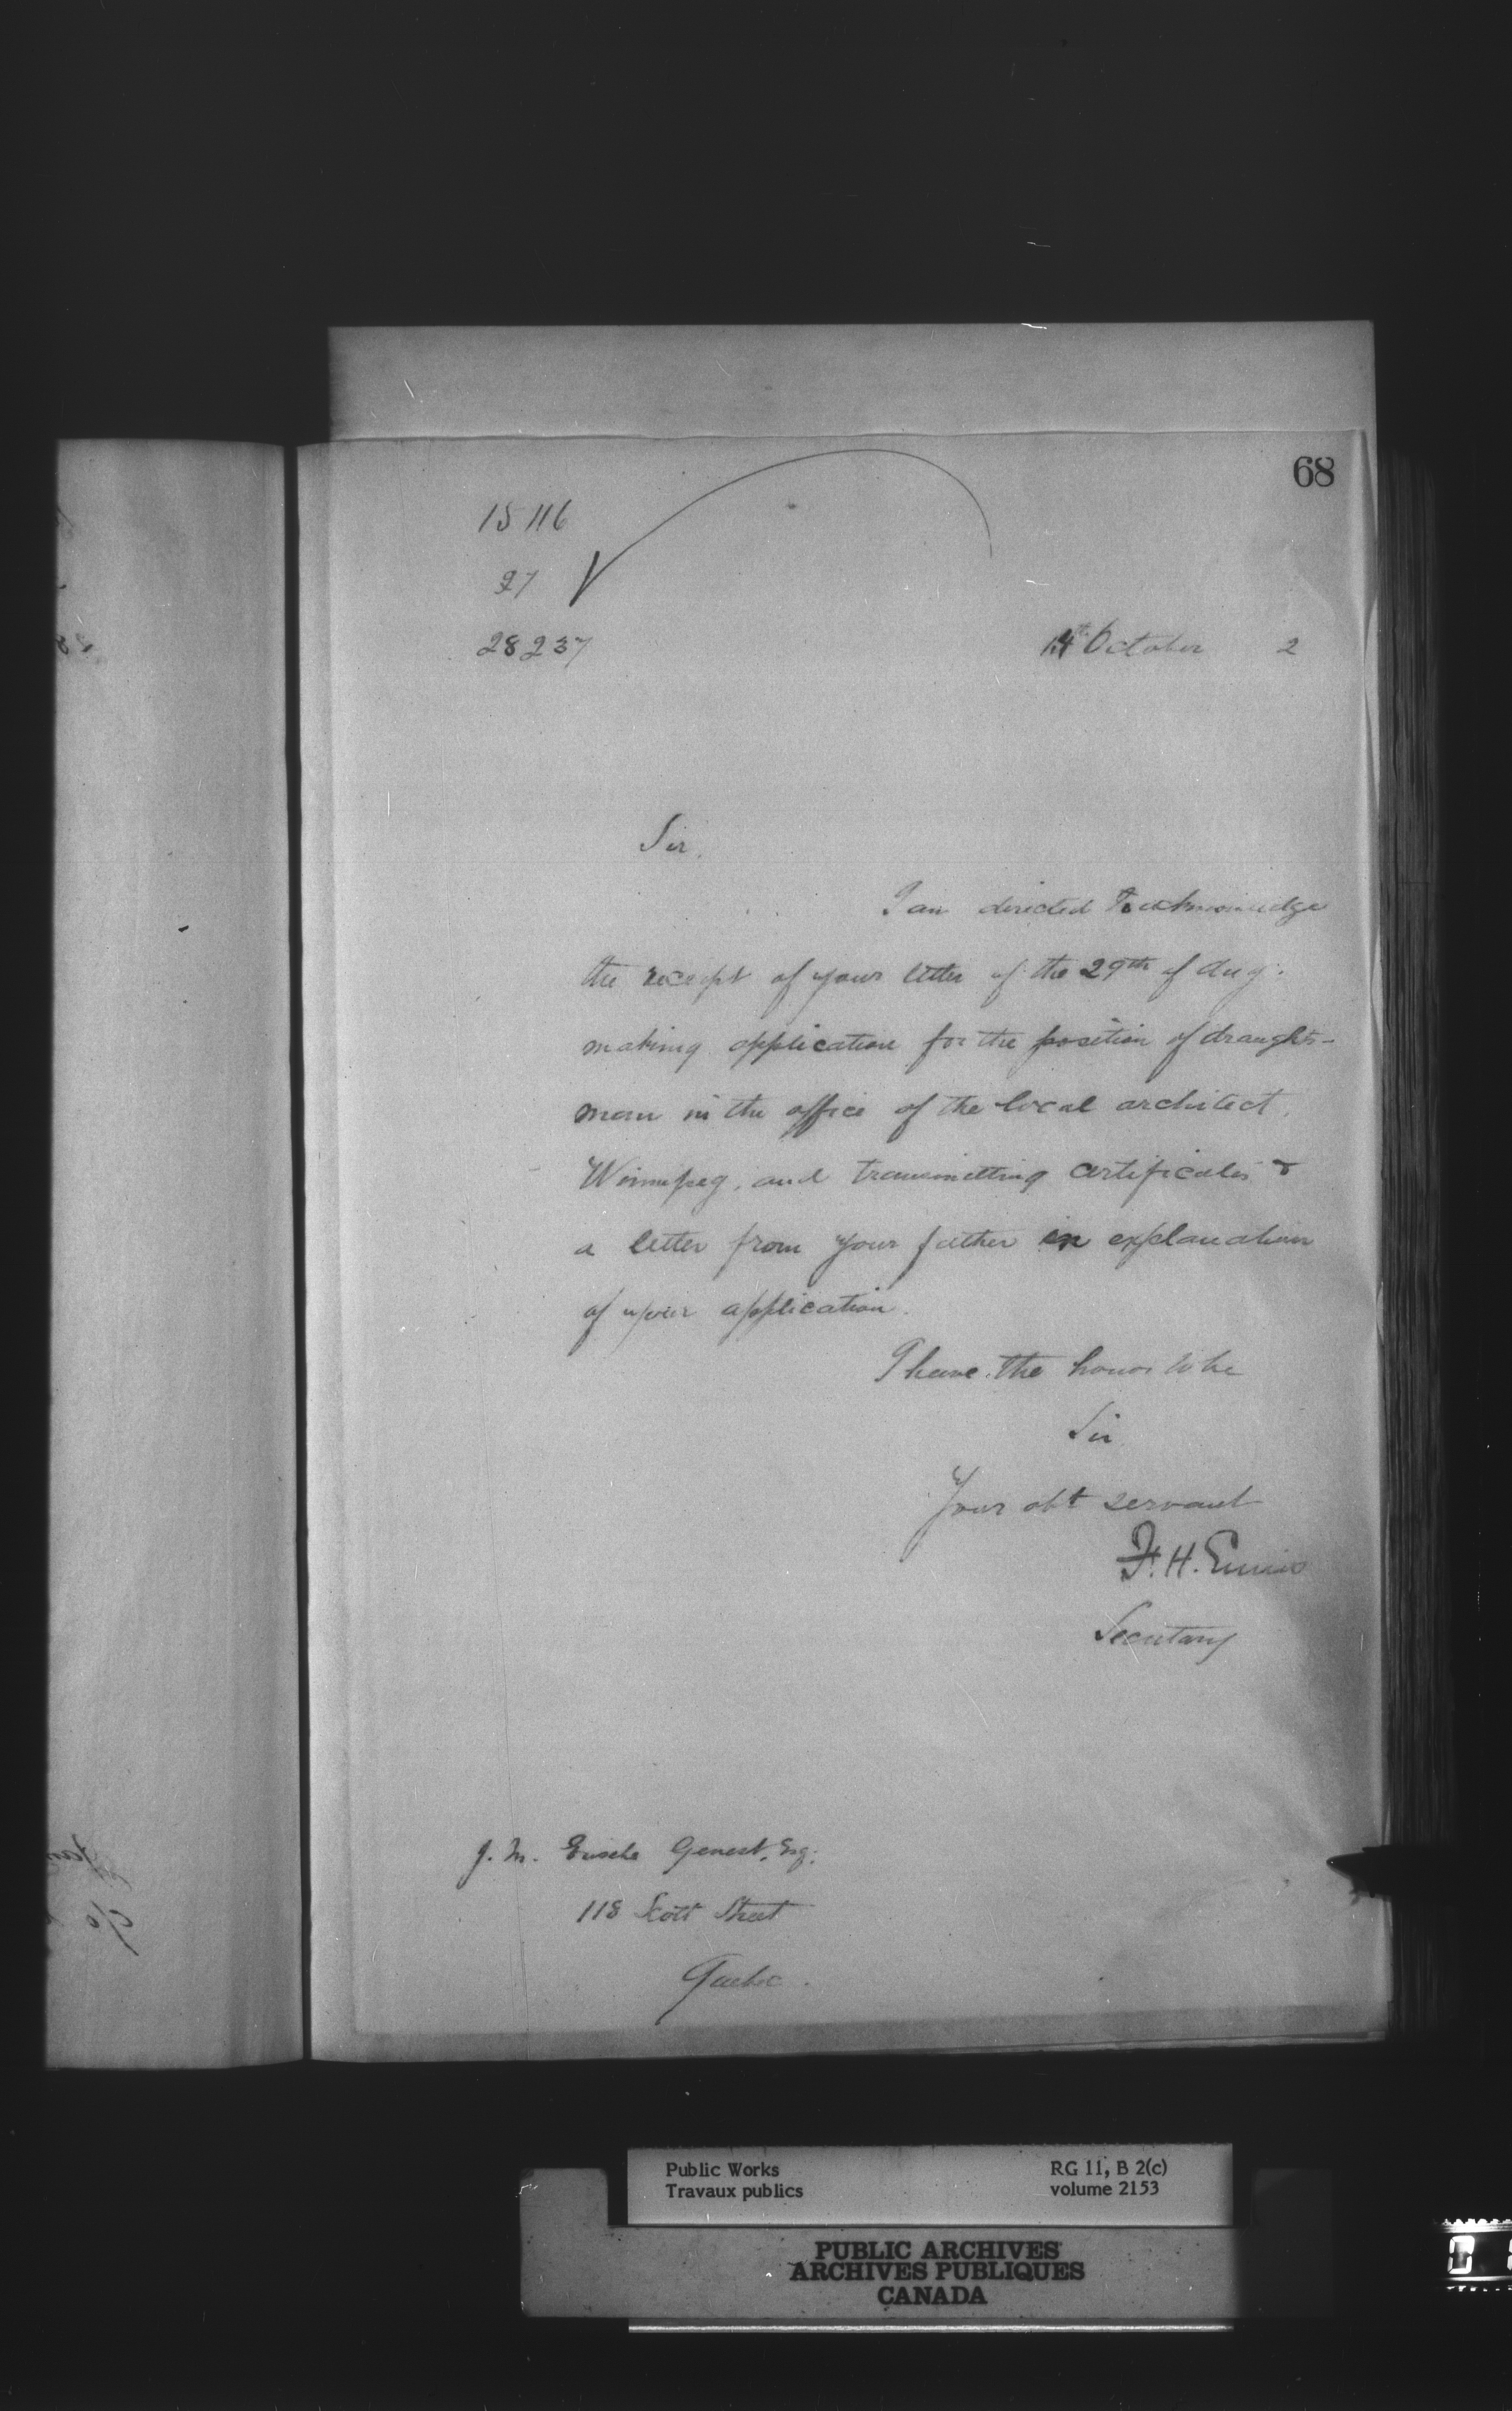 68
15116
97
28237
14th October 2
Sir,
I am directed to acknowledge
the receipt of your letter of the 29th of Aug.
making application for the position of draughts-
man in the office of the local architect,
Winnipeg, and transmitting certificates &
a letter from your father in explanation
of your application.
I have the honor to be
Sir
Your obt servant
F. H. Ennis
Secretary
J. M. Genest, Esq.
118 Scott Street
Quebec.
Public Works RG 11, B 2(c)
Travaux publics volume 2153
PUBLIC ARCHIVES
ARCHIVES PUBLIQUES
CANADA